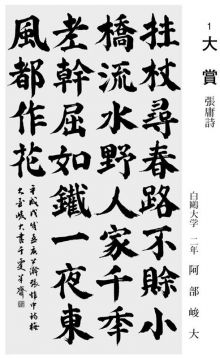 1
大賞 張庸詩
白鷗大学 二年 阿部峻大
拄杖尋春路不賖小
橋流水野人家千年
老幹屈如鐵一夜東
風都作花
平成戊戌